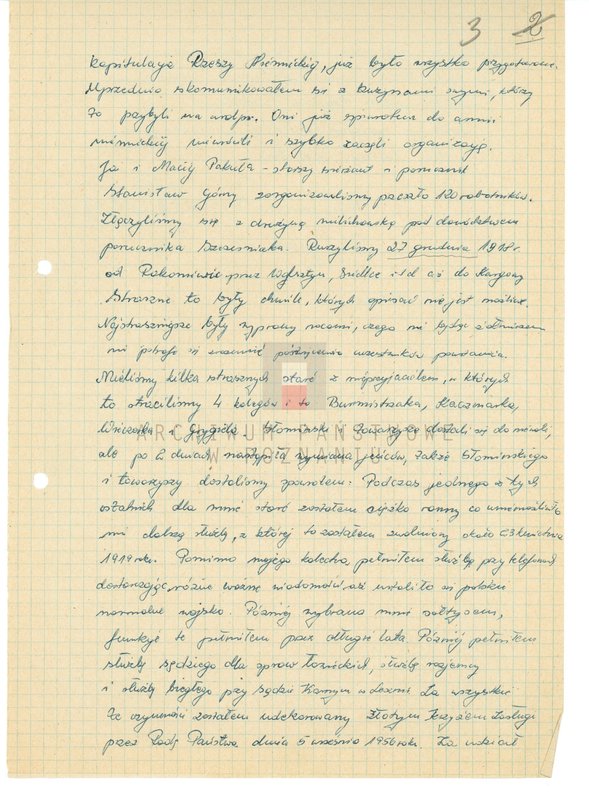 3 2
kapitulacja Rzeszy Niemieckiej, już było wszystko przygotowane.
Uprzednio skomunikowałem się z kuzynami swymi, którzy
to przybyli na urolp. Oni już spowrotem do armii
niemieckiej nie wrócili i szybko zaczęli organizację.
Ja i Maciej Pakuła - starszy sierżant i porucznik
Stanisław Górny zorganizowaliśmy paczało 120 robotników.
Złączyliśmy się z drużyną wilichowską pod dowództwem
porucznika Szczesniaka. Ruszyliśmy 27 grudnia 1918 r.
od Rakoniewic przez Wolsztyn, Siedlec itd aż do Kargowy
Straszne to były chwile, których opisać nie jest możliwe.
Najstraszniejsze były wyprawy nocami, czego nie będąc żołnierzem
nie potrafi się zrozumieć uczestników powstania.
Mieliśmy kilka strasznych starć z nieprzyjacielem, w których
to straciliśmy 4 kolegów i to Burmistrzaka, Kaczmarka,
Wieczorka i Słomiński i towarzysze dostali się do niewoli,
ale po 2 dniach nastąpiła wymiana jeńców, także Słomińskiego
i towarzyszy dostaliśmy spowrotem. Podczas jednego z tych
ostatnich dla mnie starć zostałem ciężko ranny co uniemożliwiło
mi dalszą służbę, z której to zostałem zwolniony około 23 kwietnia
1919 roku. Pomimo mojego kalectwa, pełniłem służbę przy telefonach
dostarczając różne ważne wiadomości, aż ustaliło się polskie
normalne wojsko. Później wybrano mnie sołtysem,
funkcję te pełniłem przez długie lata. Później pełniłem
służbę sędziego dla spraw łowieckich, służbę rozjemcy
i służbę biegłego przy sądzie Karnym w Lesznie. Za wszystkie
te czynności zostałem udekorowany Złotym Krzyżem Zasługi
przez Radę Państwa, dnia 5 września 1956 roku. Za udział
ARCHIWUM PAŃSTWOWE
W POZNANIU